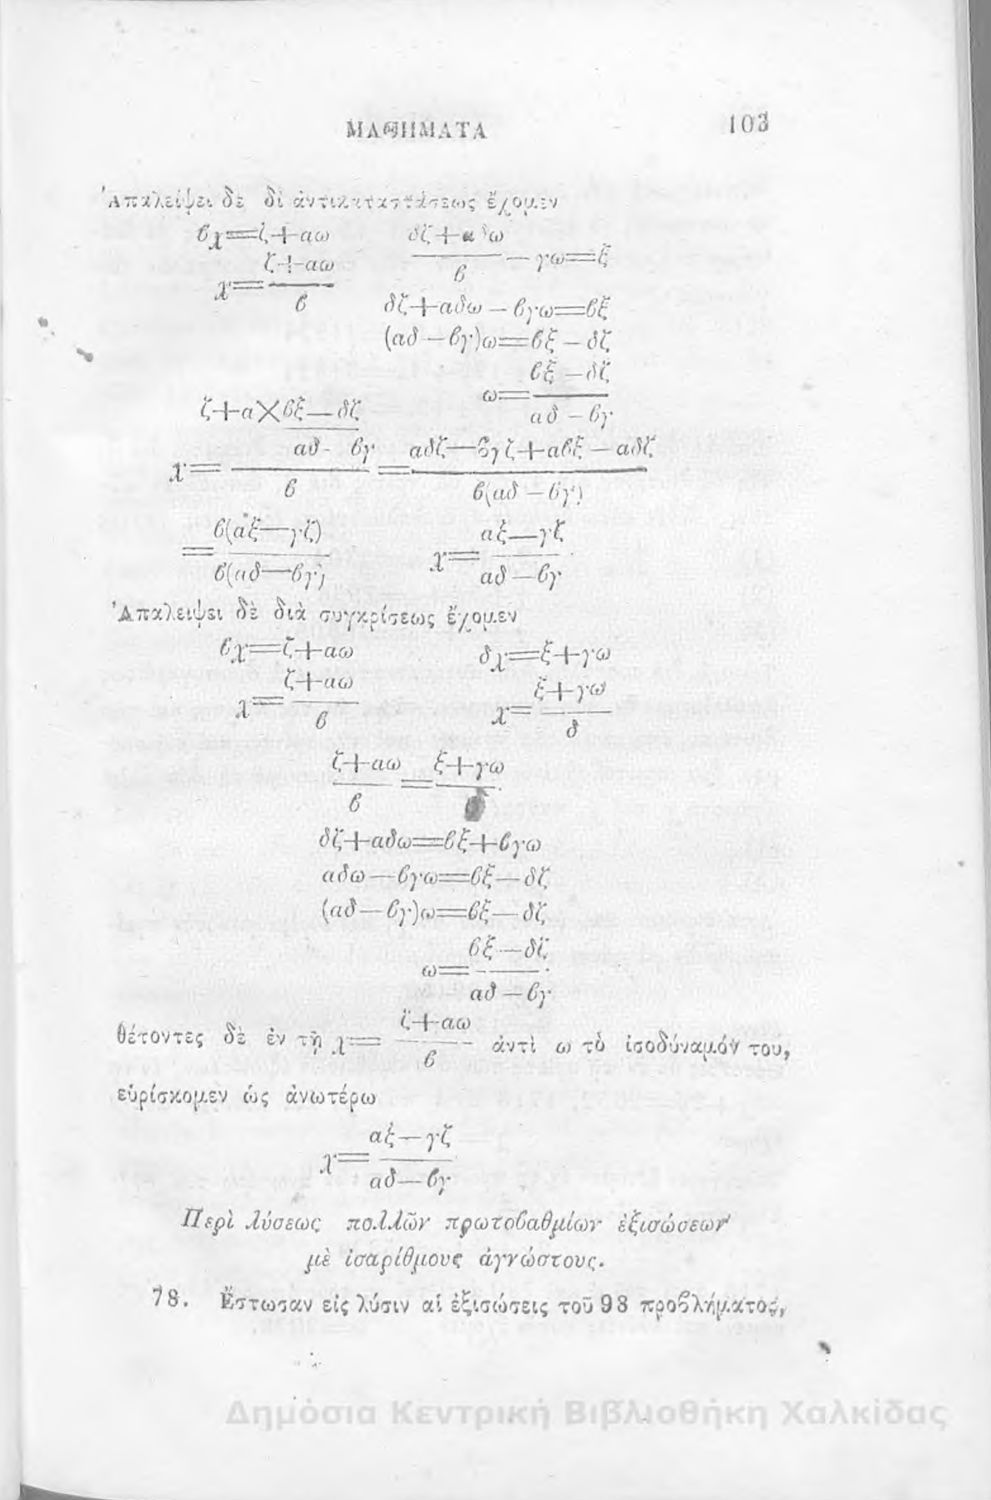 ΜΑΘΗΜΑΤΑ 103
Ἀπαλείψει δὲ δι ἀντικαταστάσεως ἔχομεν
βχ=ζ+αω δζ+αδω
χ= ζ+αω / β  / β — γω=ξ
δζ+αδω — βγω=βξ
(αδ — βγ)ω=βξ — δζ
ω= βξ — δζ / αδ — βγ
χ= ζ+αΧβξ — δζ / αδ - βγ / β = αδζ — βγζ+αβξ — αδζ / β(αδ — βγ)
= β(αξ — γζ) / β(αδ — βγ) χ= αξ — γζ / αδ — βγ
Ἀπαλειψει δὲ διὰ συγκρίσεως ἔχομεν
βχ=ζ+αω δχ=ξ+γω
χ= ζ+αω / β χ= ξ+γω / δ
ζ+αω / β = ξ+γω / δ
δζ+αδω=βξ+βγω
αδω — βγω=βξ — δζ
(αδ — βγ)ω=βξ — δζ
ω= βξ — δζ / αδ — βγ
θέτοντες δὲ ἐν τῇ χ= ζ+αω / β ἀντὶ ω τὸ ἰσοδύναμόν του,
εὑρίσκομεν ὡς ἀνωτέρω
χ= αξ — γζ / αδ — βγ
Περὶ λύσεως πολλῶν πρωτοβαθμίων ἐξισώσεων
μὲ ἰσαρίθμους ἀγνώστους.
78. Ἔστωσαν εἰς λύσιν αἱ ἐξισώσεις τοῦ 98 προβλήματος,
Δημόσια Κεντρική Βιβλιοθήκη Χαλκίδας